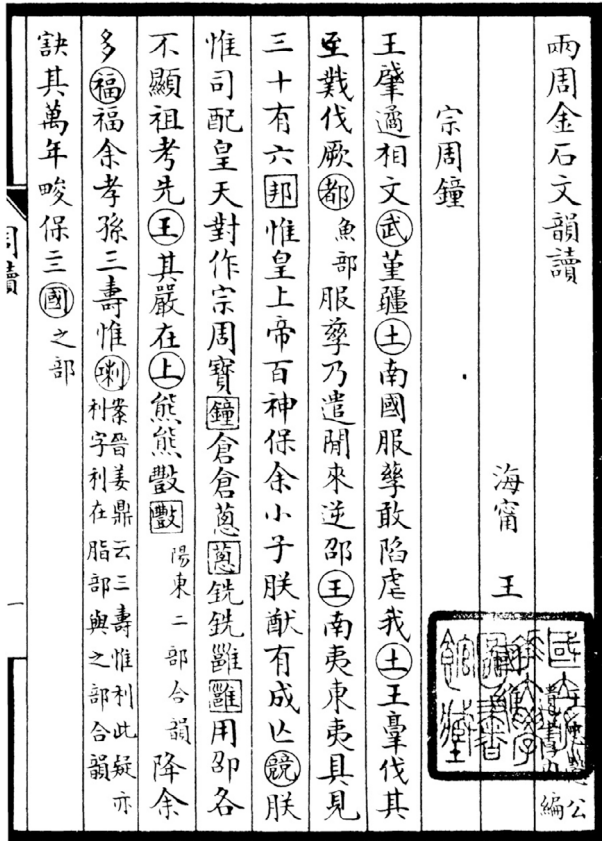 兩周金石文韻讀
海甯 王 公編
宗周鐘
王肇遹相文武堇疆土南國服孳敢陷虐我土王𦎫伐其
至戮伐厥都魚部服孳乃遣閒來逆卲王南夷東夷具見
三十有六邦惟皇上帝百神保余小子朕猷有成亡競朕
惟司配皇天對作宗周寶鐘倉倉蔥蔥銑銑雝雝用卲各
不顯祖考先王其嚴在上熊熊數數陽東二部合韻降余
多福福余孝孫三壽惟琍案晉姜鼎云三壽惟利此疑亦利字利在脂部與之部合韻
訣其萬年畯保三國之部
周讀
一